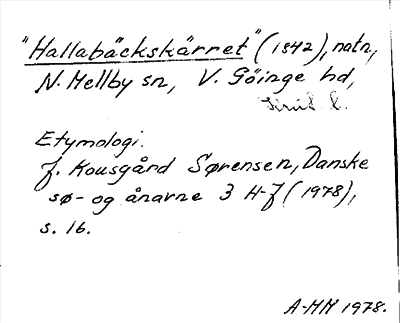 "Hallabäckskärret" (1842), natn,
N. Mellby sn, V. Göinge hd,
Krist l.
Etymologi.
J. Kousgård Sørensen, Danske
sø- og ånavne 3 H-J (1978),
s. 16.
A-MH 1978.